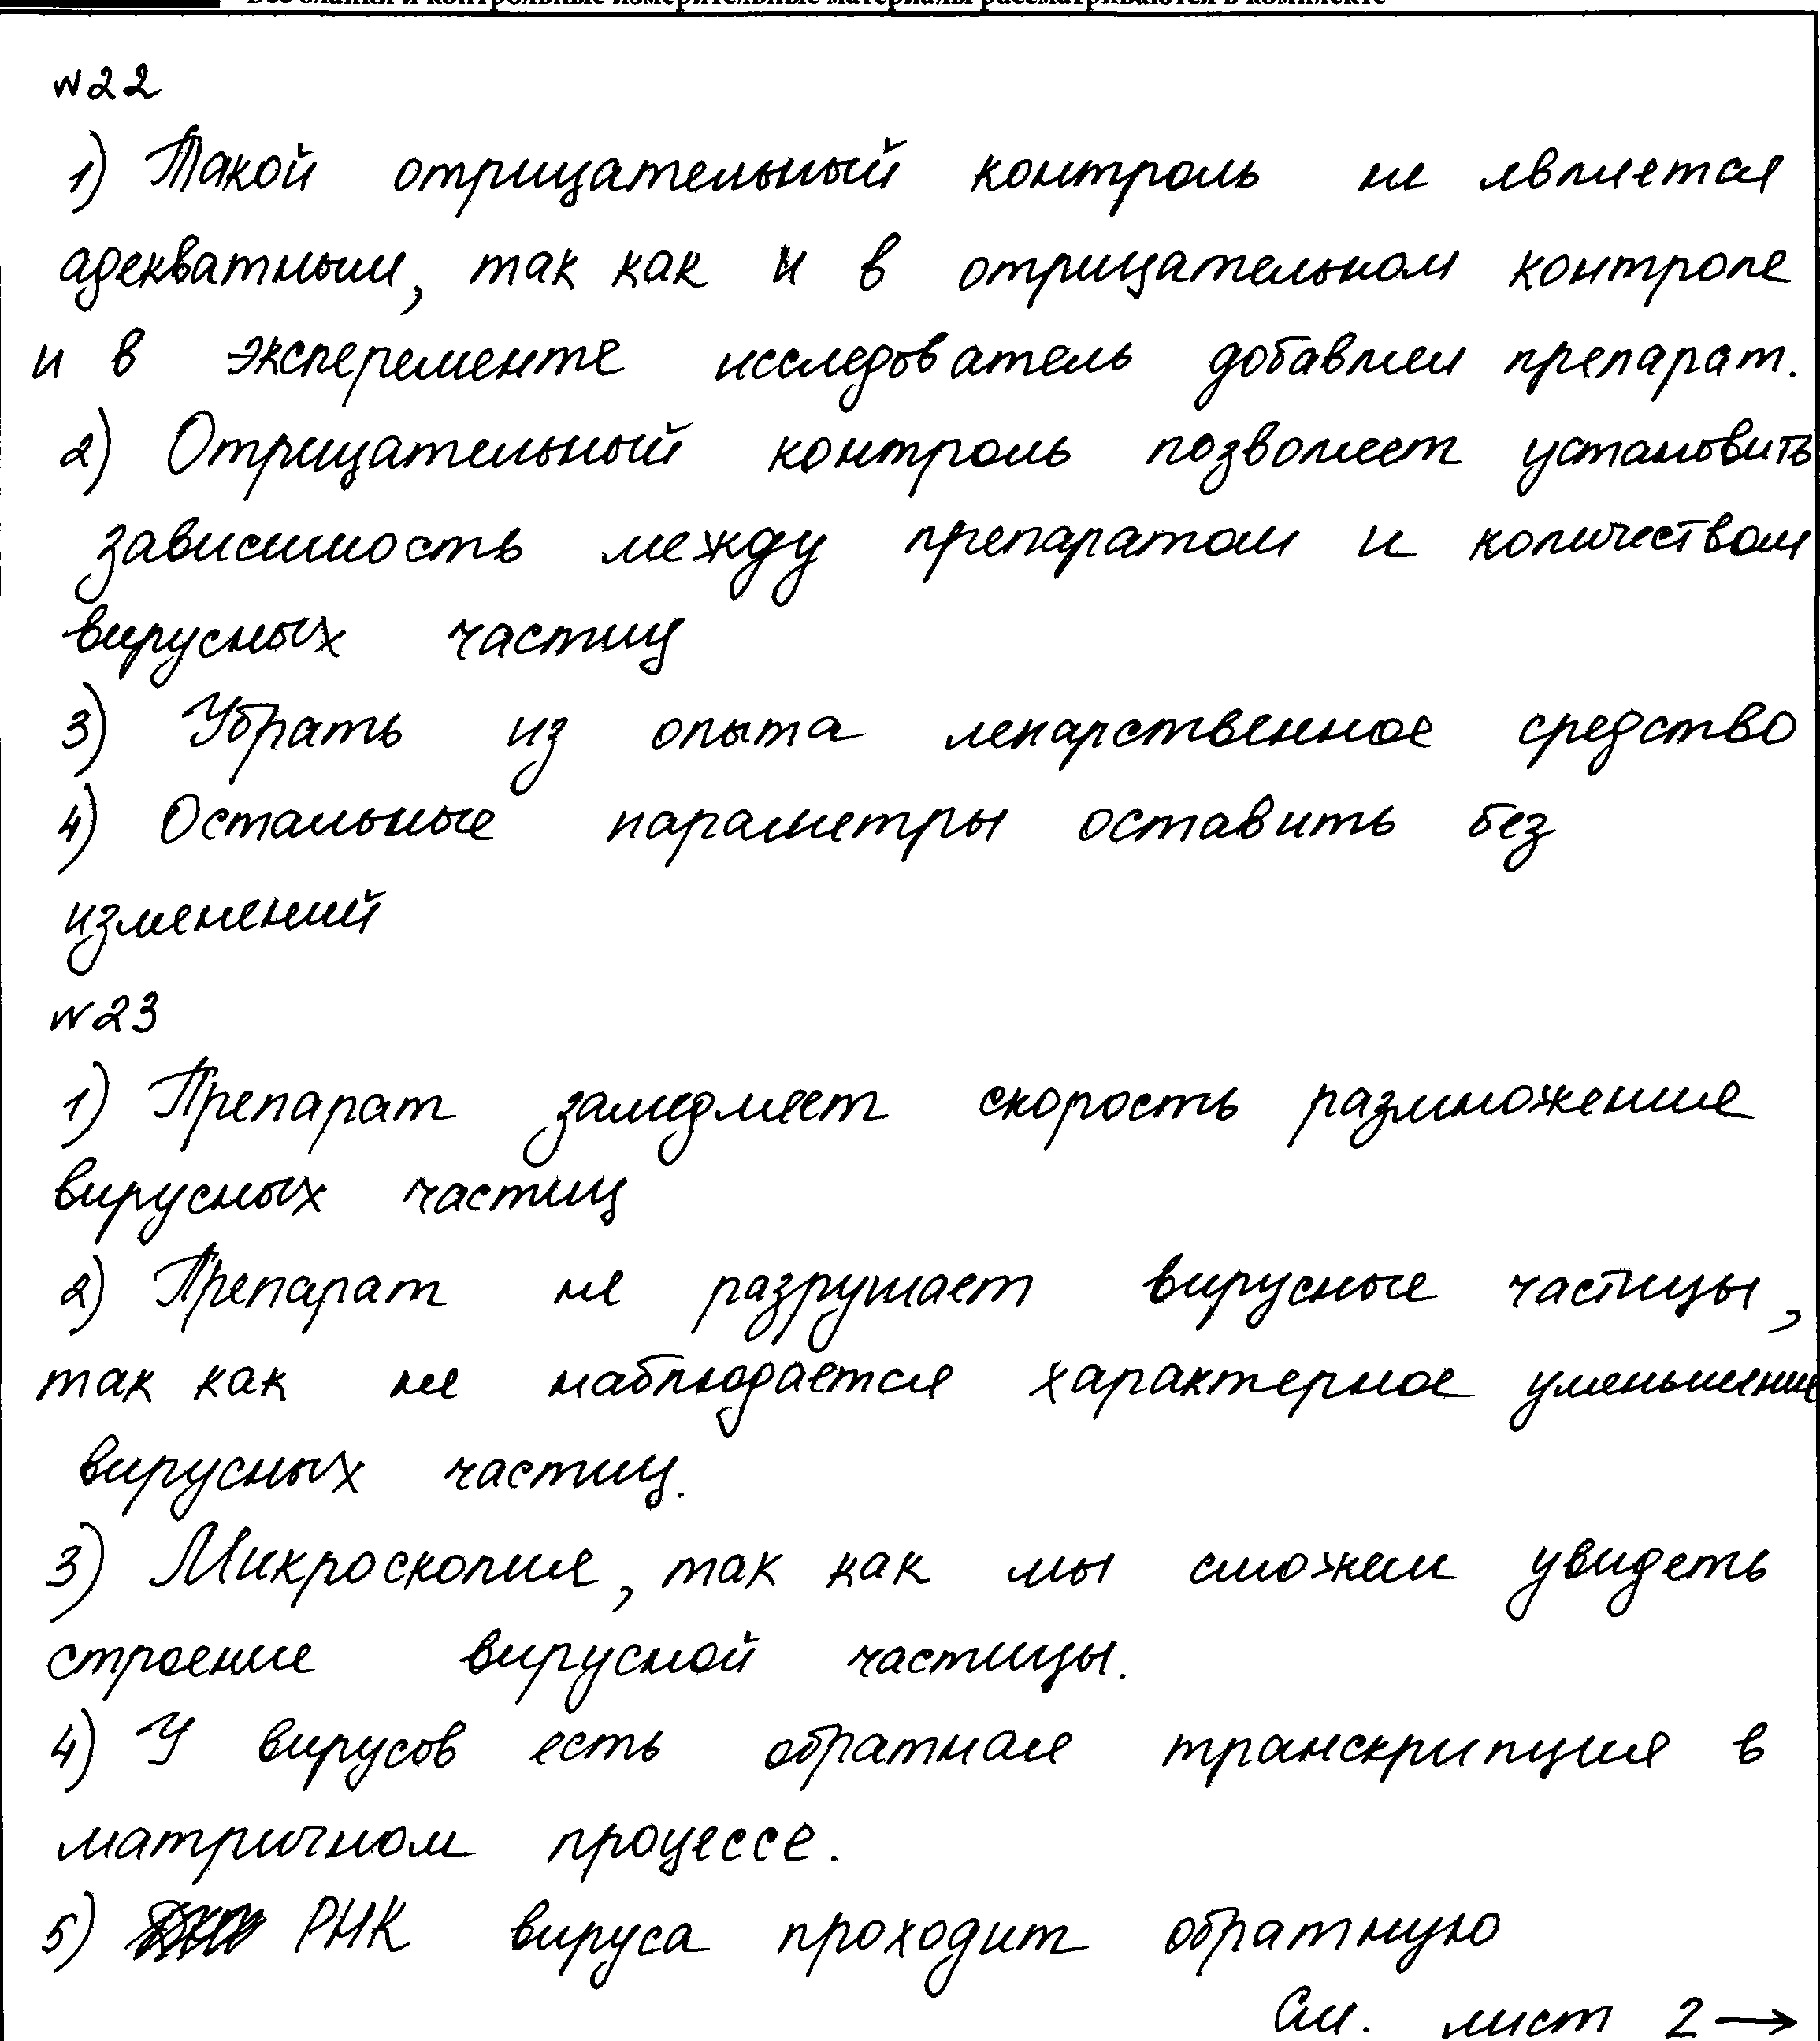 Все бланки и контрольные измерительные материалы рассматриваются в комплекте
№22
1) Такой отрицательный контроль не является
адекватным, так как и в отрицательном контроле
и в эксперементе исследователь добавлял препарат.
2) Отрицательный контроль позволяет установить
зависимость между препаратом и количеством
вирусных частиц
3) Убрать из опыта лекарственное средство
4) Остальные параметры оставить без
изменений
№23
1) Препарат замедляет скорость размножение
вирусных частиц
2) Препарат не разрушает вирусные частицы,
так как не наблюдается характерное уменьшение
вирусных частиц.
3) Микроскопия, так как мы сможем увидеть
строение вирусной частицы.
4) У вирусов есть обратная транскрипция в
матричном процессе.
5) РНК вируса проходит обратную
См. лист 2 →